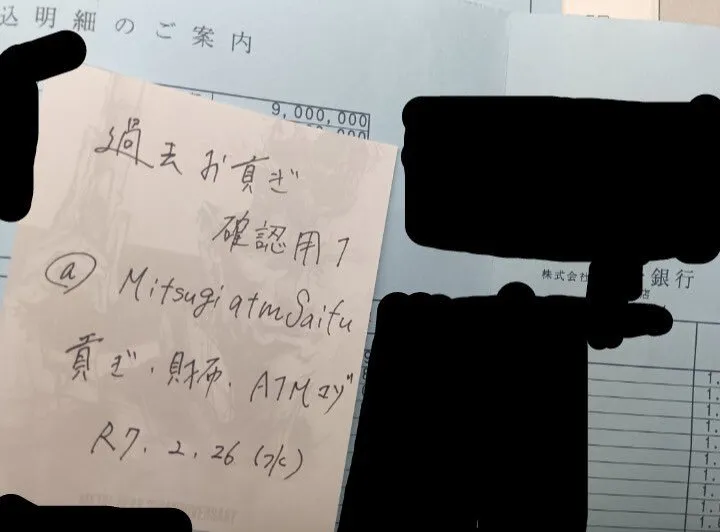 込明細のご案内
9,000,000
過去お貢ぎ
確認用1
@MitsugiatmSaifu
貢ぎ、財布、ATMマゾ
R7.2.26(水)
株式会社
銀行
店